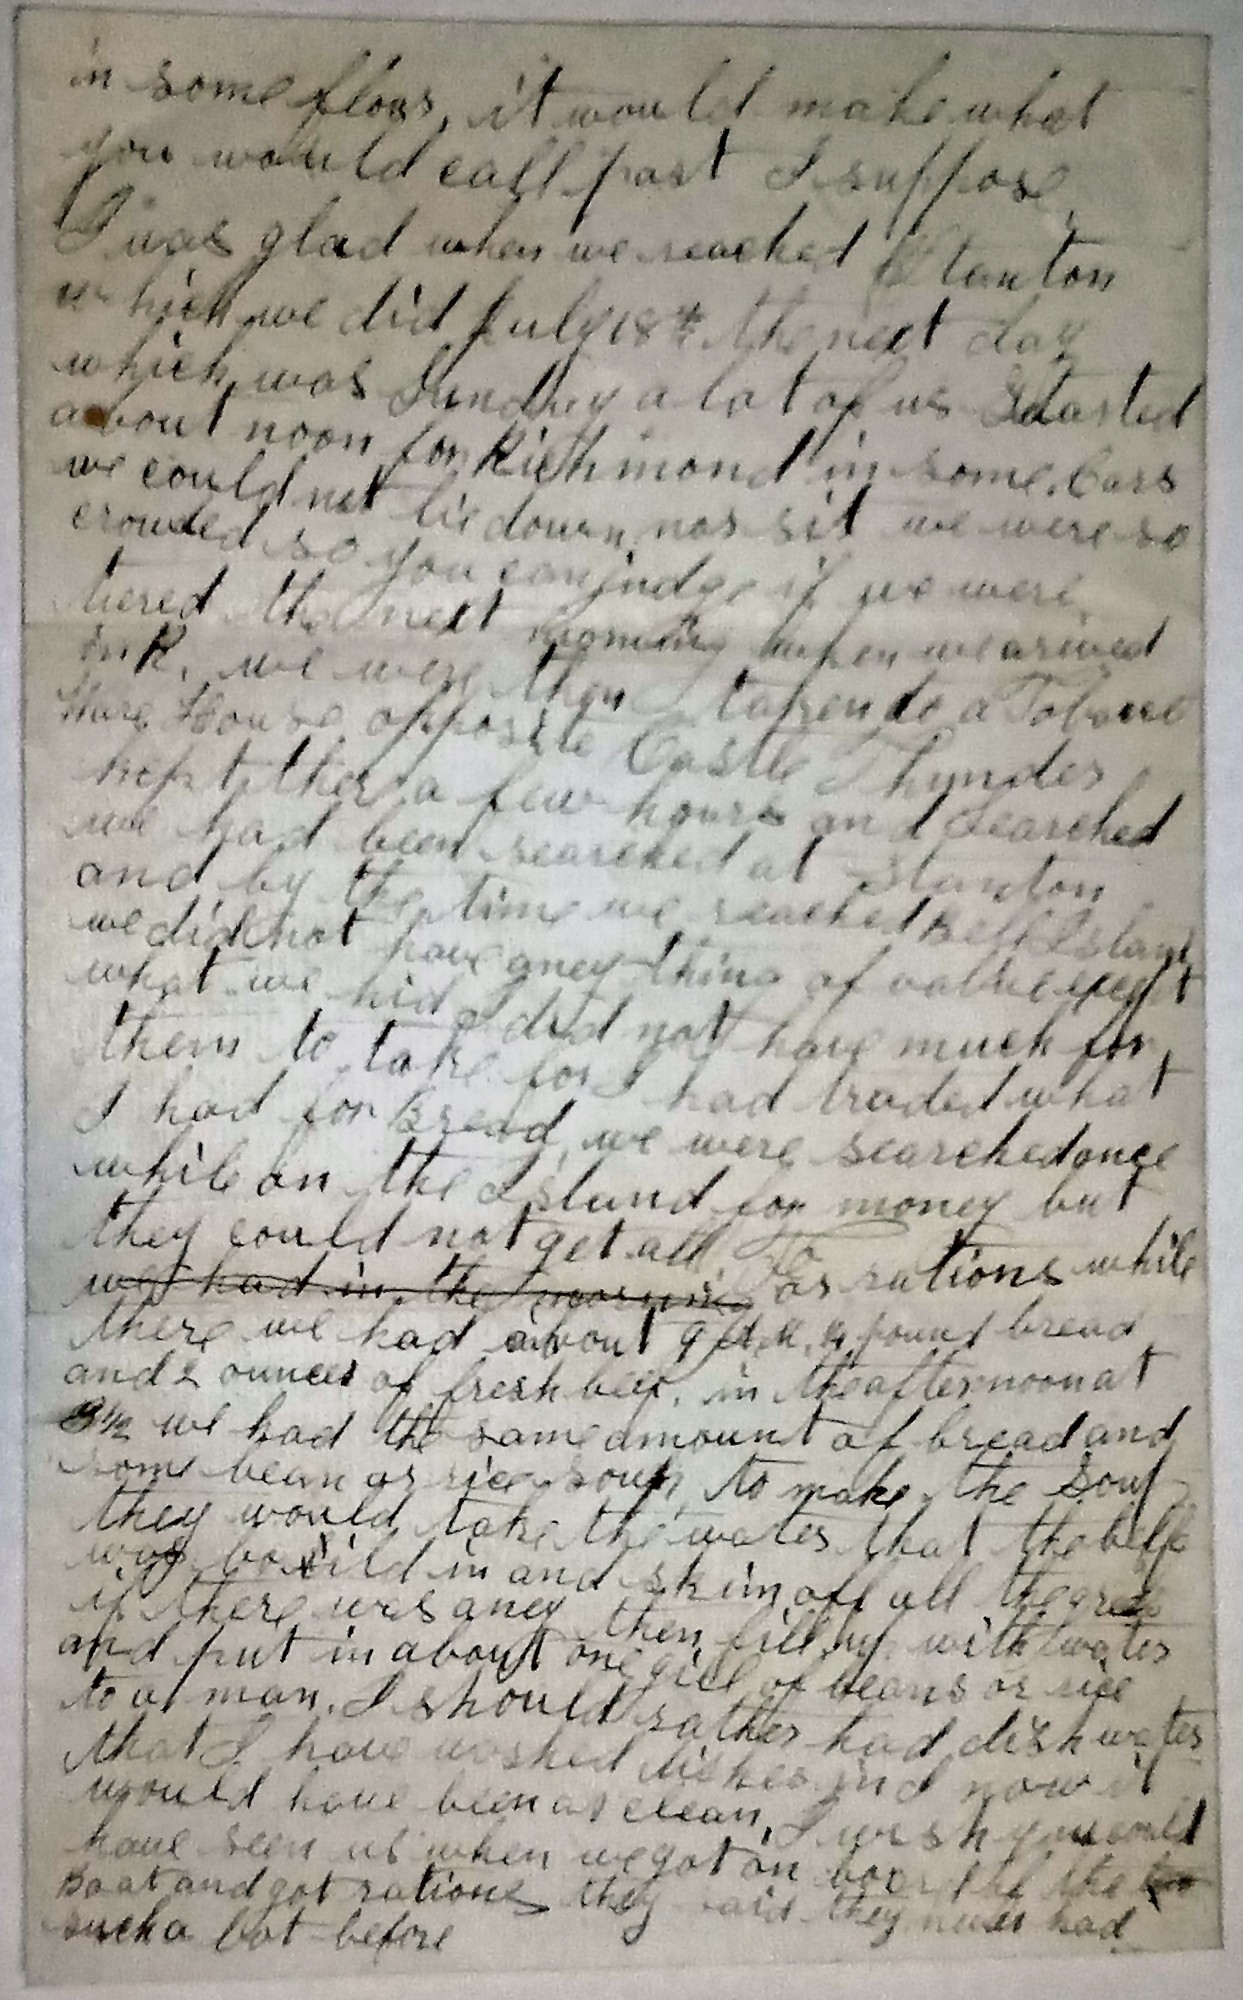 in some flour, it would make what
you would call past I suppose,
I was glad when we reached Stanton
which we did July 18th the next day
which was Sunday a lot of us Started
about noon for Richmond in some Cars
we could not lie down, nor sit we were so
crowded so you can judge if we were
tiered the next morning when we arived
in R. we were then taken to a Tobacco
Ware House opposite Castle Thunder
kept ther a few hours and Searched
we had been searched at Stanton
and by the time we reached Bell Island
we did not have aney thing of value
what we hid I did not have much for
them to take for I had traded what
I had for Bread, we were searched once
while on the Island for money but
they could not get all. To
we had in the morning as rations while
there we had about 9 A.M. pound bread
and 2 ounces of fresh beef, in the afternoon at
we had the same amount of bread and
some bean or rice soup, to make the Soup
they would take the water that the
was boild in and skim off all the
if there was aney then fill up with water
and put in about one gill of beans or rice
to a man. I should rather had dish water
that I have washed dishes in I now it
would have been as clean, I wish you could
have seen us when we got on board of the
Boat and got rations they said they never had
such a lot before